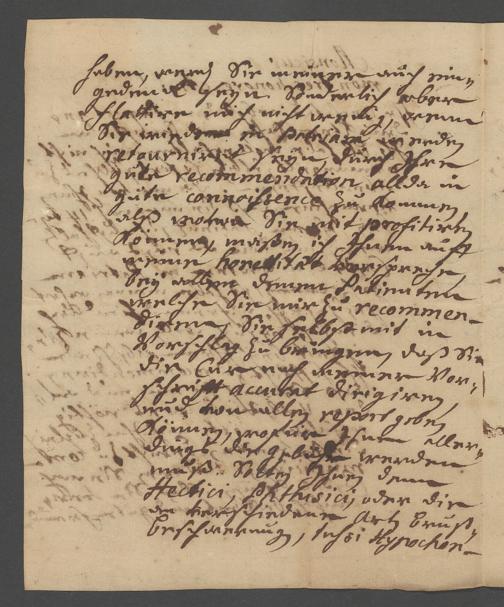 haben, werd Sie meiner auch ein-
gedenck seyn. Sonderlich aber
flattire mich nicht wenig, wenn
Sie wiederum in Patriam werden
retourniret seyn, durch Ihre
gute recommendation allda in
gute connoissence zu kommen,
alß wovon Sie mit profitiren
können, maßen ich Ihnen auff
meine honettität verspreche,
bey allen denen Patienten
welche Sie mir zu recommen-
diren, Sie selbst mit in
Vorschlag zu bringen, daß Sie
die Cur nach meiner Vor-
schrifft accurat dirigiren,
und von allen report geben
können, wofür Ihnen aller-
dings die gebühr werden
muß. Solten Ihnen denn
Hectici, Phthisici, oder die
an verschiedene Arth brust-
beschwerung, Tussi Hypochon-